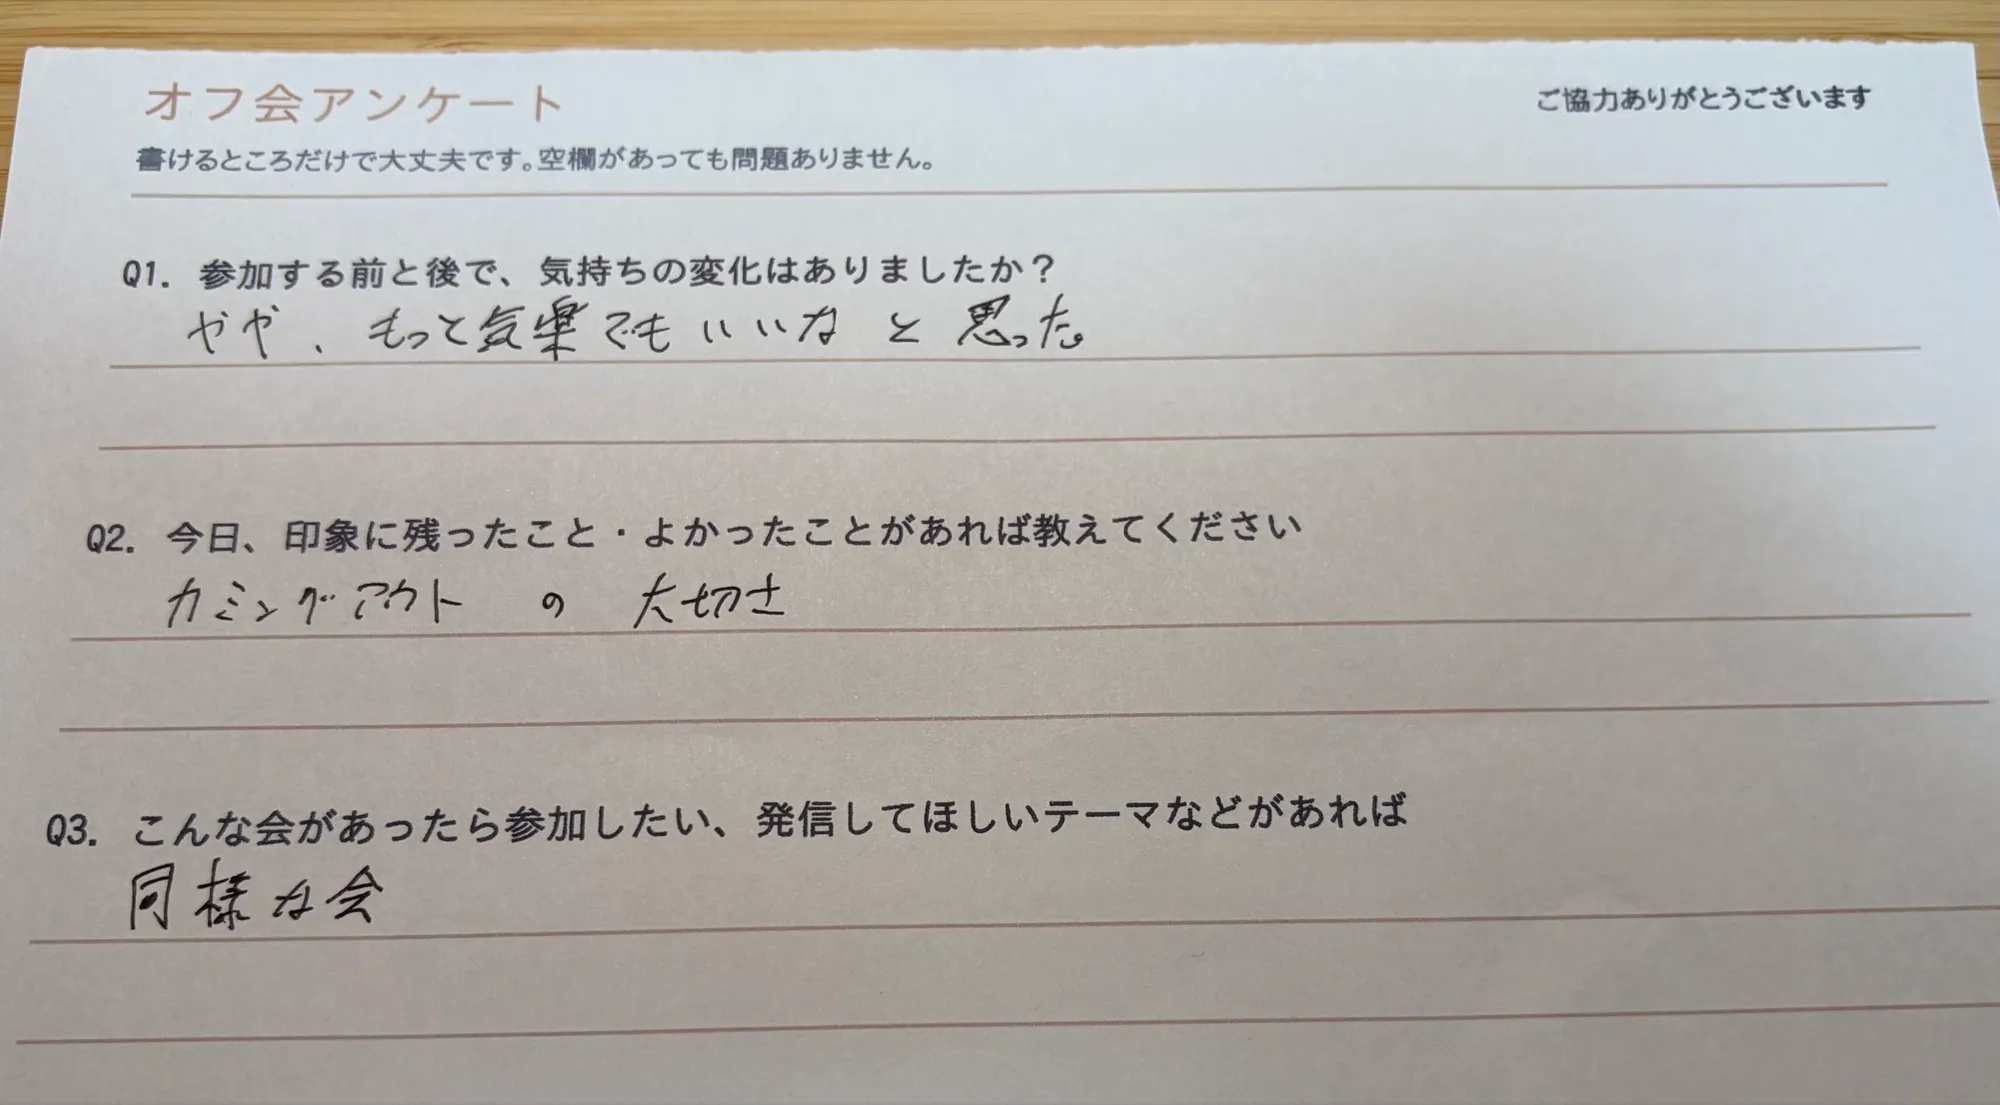 オフ会アンケート
ご協力ありがとうございます
書けるところだけで大丈夫です。空欄があっても問題ありません。
Q1. 参加する前と後で、気持ちの変化はありましたか？
やや、もっと気楽でもいいなと思った。
Q2. 今日、印象に残ったこと・よかったことがあれば教えてください
カミングアウトの大切さ
Q3. こんな会があったら参加したい、発信してほしいテーマなどがあれば
同様な会